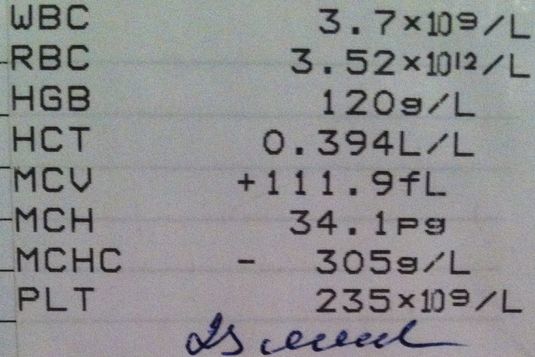 WBC 3.7×10⁹/L
RBC 3.52×10¹²/L
HGB 120g/L
HCT 0.394L/L
MCV +111.9fL
MCH 34.1pg
MCHC - 305g/L
PLT 235×10⁹/L